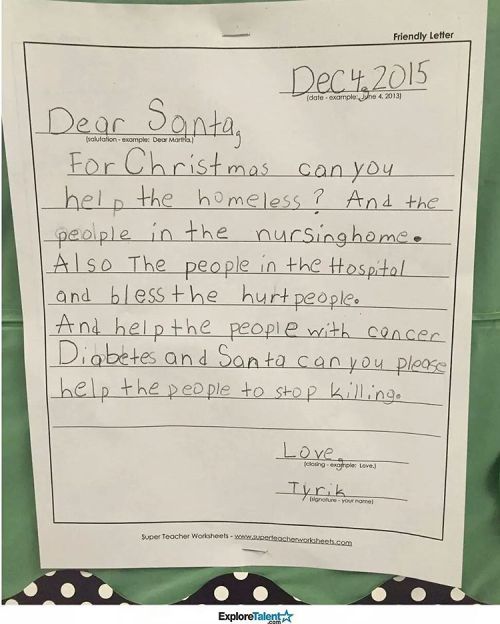 Friendly Letter
Dec 4, 2015
(date - example: June 4, 2013)
Dear Santa,
(salutation - example: Dear Martha,)
For Christmas can you
help the homeless? And the
peolple in the nursinghome.
Also The people in the Hospital
and bless the hurt people.
And help the people with cancer
Diabetes and Santa can you please
help the people to stop killing.
Love,
(closing - example: Love,)
Tyrik
(signature - your name)
Super Teacher Worksheets - www.superteacherworksheets.com
ExploreTalent
.com